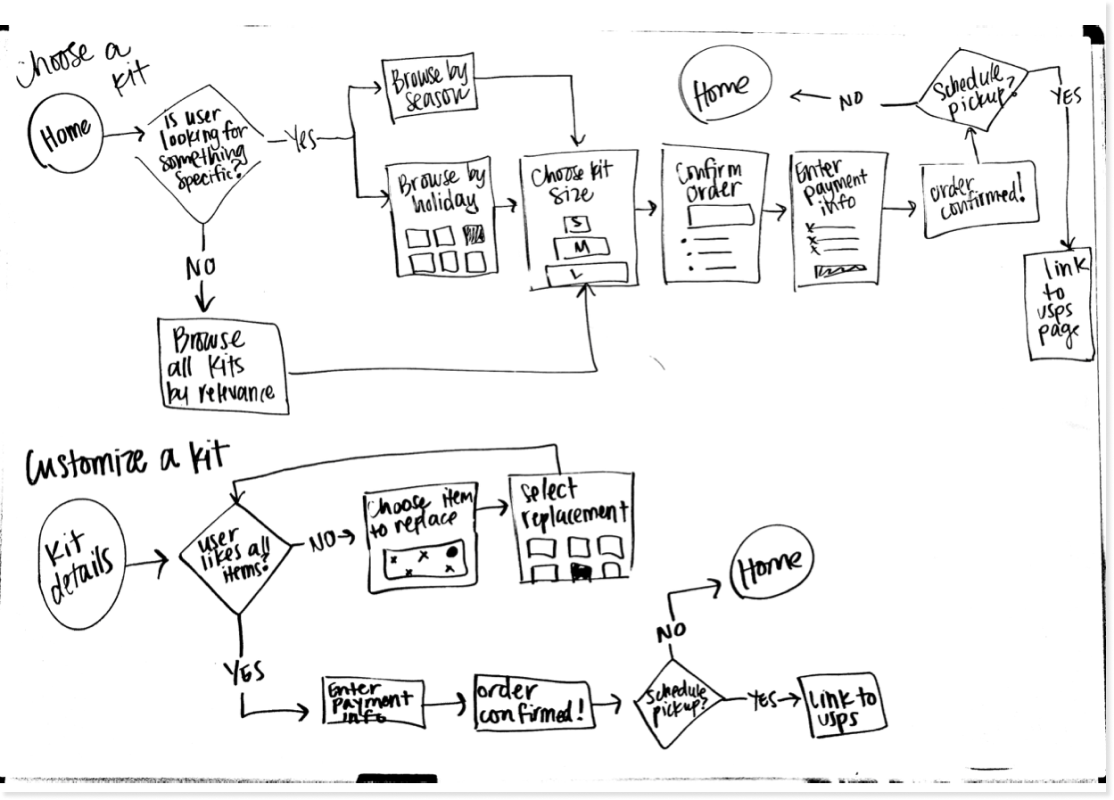 Choose a
kit
Home
Is user
looking for
something
specific?
Yes
NO
Browse
all kits
by relevance
Browse by
season
Browse by
holiday
Choose kit
size
S
M
L
Confirm
order
Enter
payment
info
order
confirmed!
Schedule
pickup?
NO
Home
YES
link
to
usps
page
Customize a kit
Kit
details
user
likes all
items?
NO
Choose item
to replace
select
replacement
YES
Enter
payment
info
order
confirmed!
Schedule
pickup?
NO
Home
YES
Link to
usps